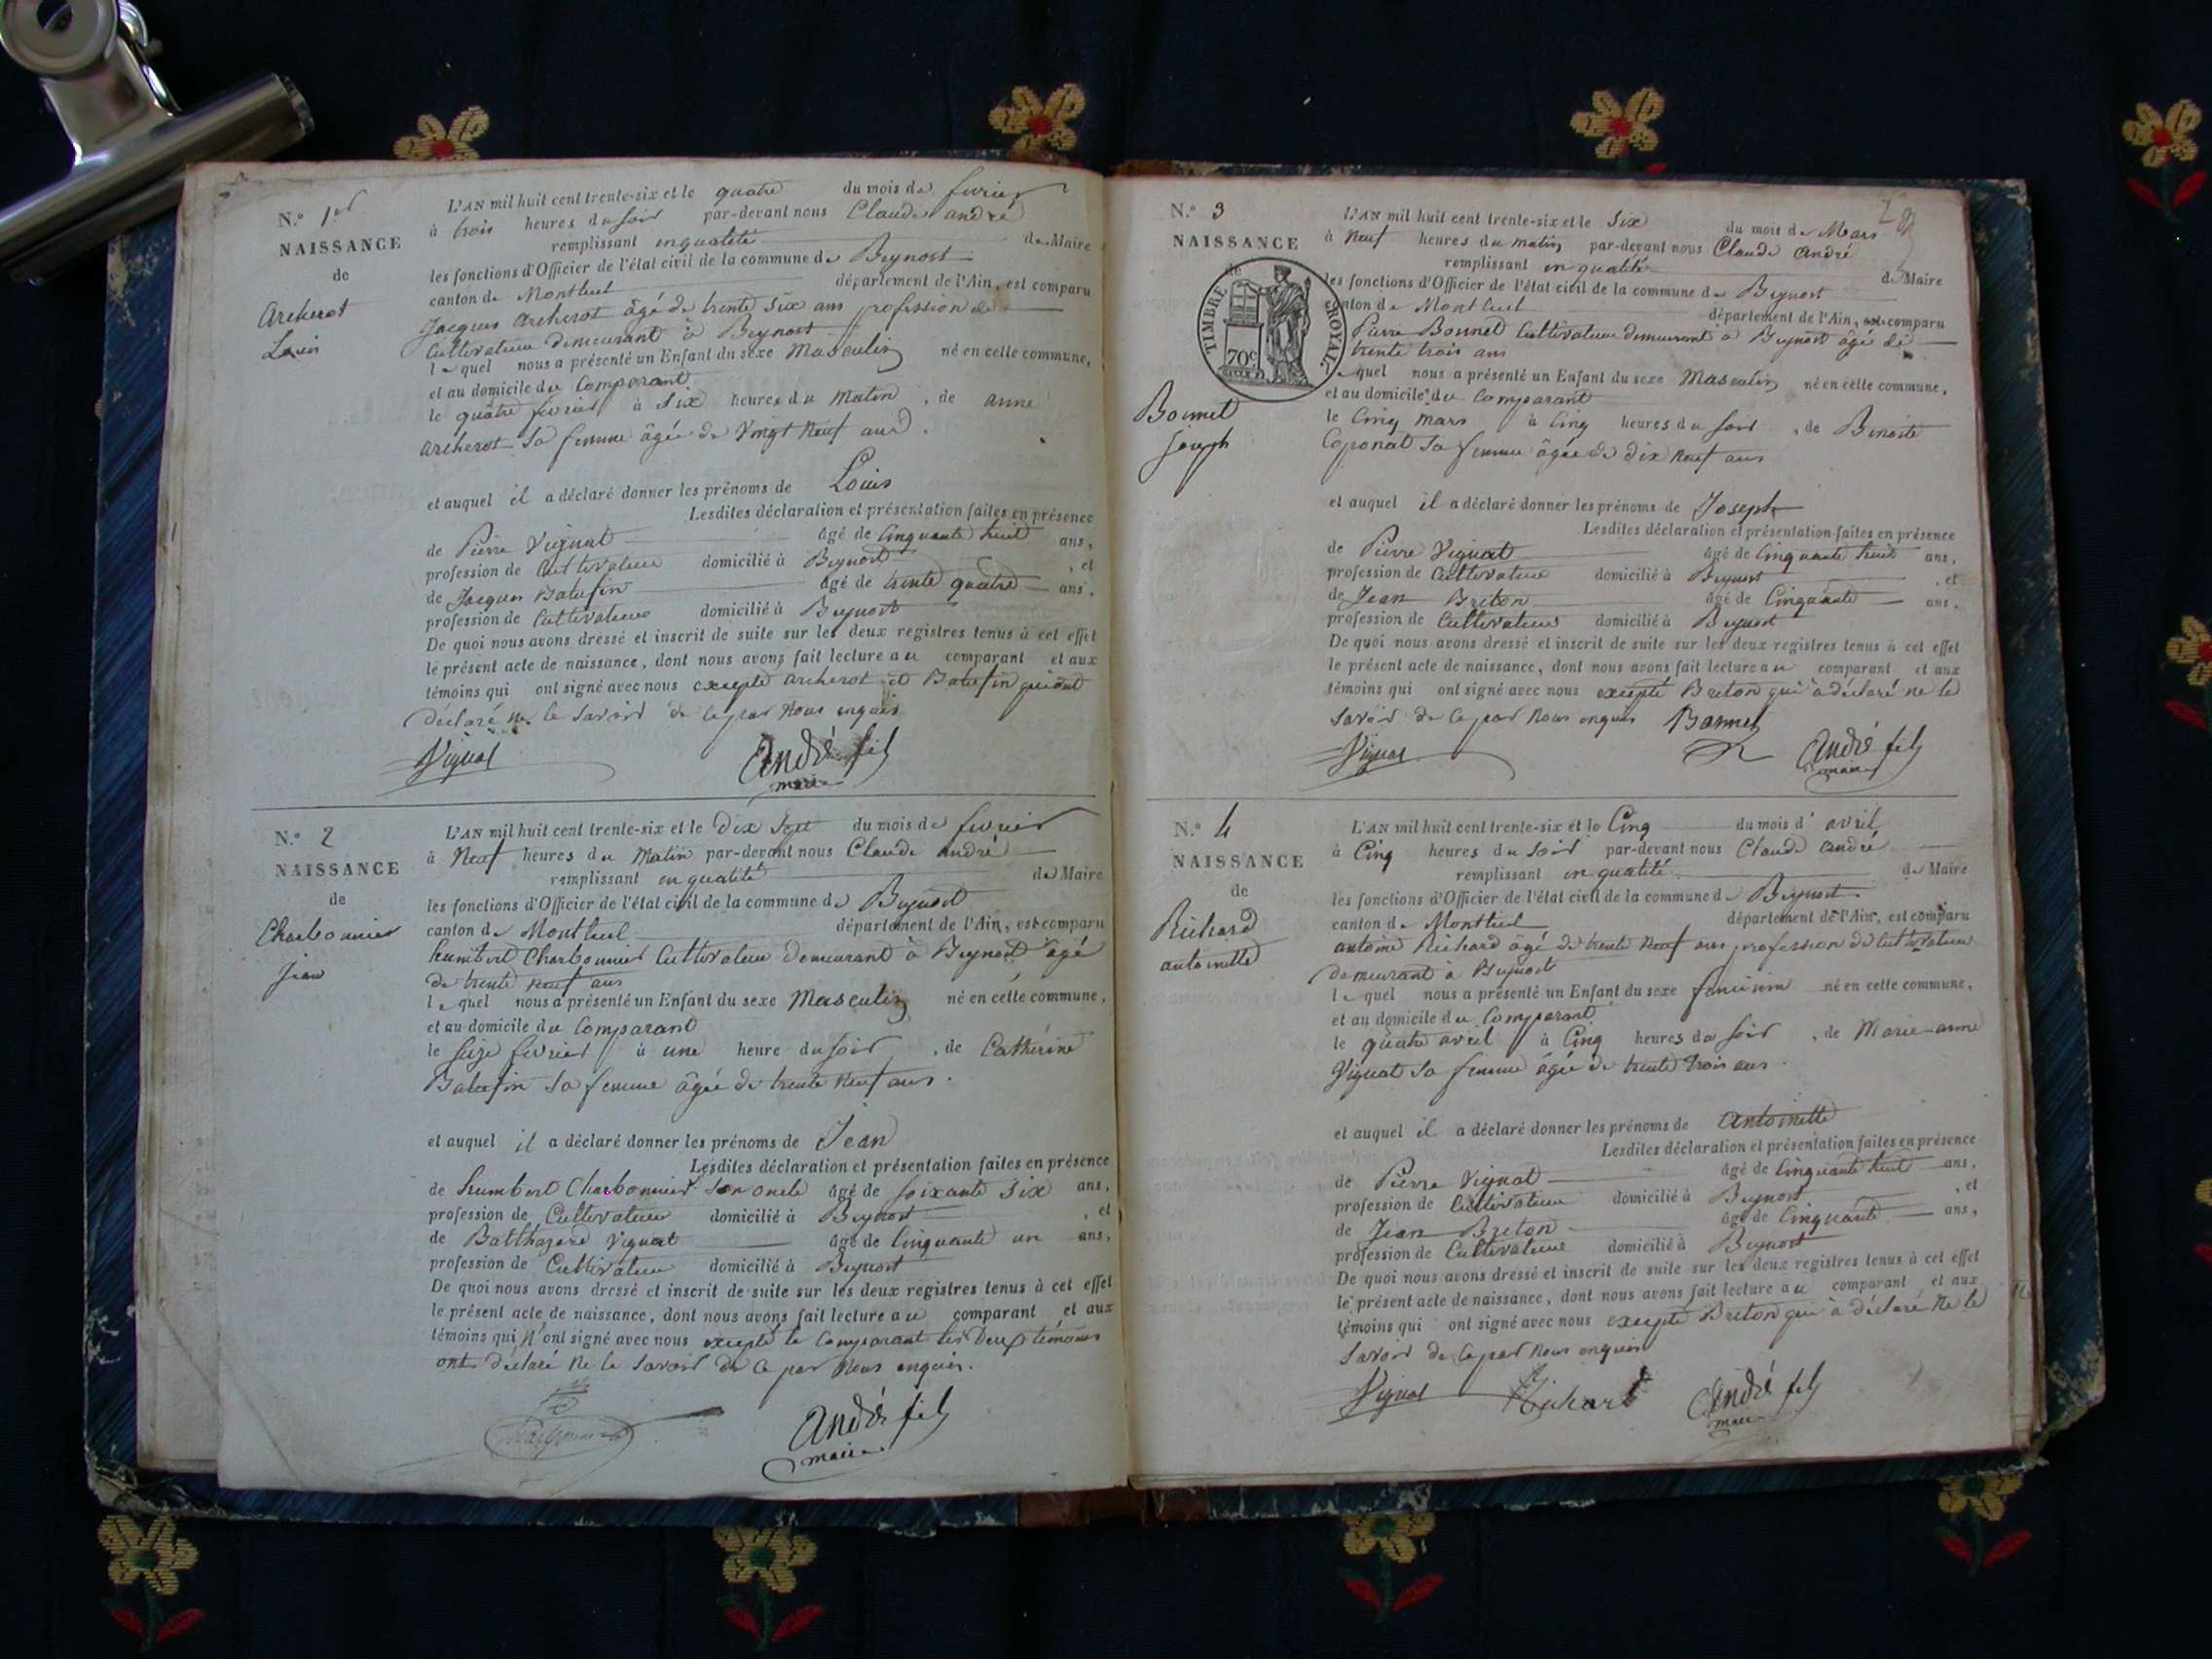 N.° 1er
NAISSANCE
de
Archerot
Louis
L'AN mil huit cent trente-six et le quatre du mois de fevrier
à trois heures du soir par-devant nous Claude andré
remplissant en qualité de Maire
les fonctions d'Officier de l'état civil de la commune de Beynost
canton de Montluel département de l'Ain, est comparu
Jacques Archerot âgé de trente six ans profession de
Cultivateur demeurant à Beynost
lequel nous a présenté un Enfant du sexe Masculin né en cette commune,
et au domicile du Comparant
le quatre fevrier à six heures du matin, de anne
archerot sa femme âgée de vingt neuf ans.
et auquel il a déclaré donner les prénoms de Louis
Lesdites déclaration et présentation faites en présence
de Pierre Vignat âgé de Cinquante huit ans,
profession de Cultivateur domicilié à Beynost, et
de Jacques Balufin âgé de trente quatre ans,
profession de Cultivateur domicilié à Beynost
De quoi nous avons dressé et inscrit de suite sur les deux registres tenus à cet effet
le présent acte de naissance, dont nous avons fait lecture au comparant et aux
témoins qui ont signé avec nous excepté archerot et Balufin qui ont
déclaré ne le savoir de ce par nous enquis
Vignat André fils
maire
N.° 2
NAISSANCE
de
Charbonnier
Jean
L'AN mil huit cent trente-six et le Dix Sept du mois de fevrier
à Neuf heures du Matin par-devant nous Claude andré
remplissant en qualité de Maire
les fonctions d'Officier de l'état civil de la commune de Beynost
canton de Montluel département de l'Ain, est comparu
humbert Charbonnier Cultivateur demeurant à Beynost âgé
de trente neuf ans
lequel nous a présenté un Enfant du sexe Masculin né en cette commune,
et au domicile du Comparant
le seize fevrier à une heure du soir, de Catherine
Balufin sa femme âgée de trente neuf ans.
et auquel il a déclaré donner les prénoms de Jean
Lesdites déclaration et présentation faites en présence
de humbert Charbonnier son oncle âgé de soixante six ans,
profession de Cultivateur domicilié à Beynost, et
de Balthazard Vignat âgé de Cinquante un ans,
profession de Cultivateur domicilié à Beynost
De quoi nous avons dressé et inscrit de suite sur les deux registres tenus à cet effet
le présent acte de naissance, dont nous avons fait lecture au comparant et aux
témoins qui n'ont signé avec nous excepté le Comparant les Deux témoins
ont déclaré ne le savoir de ce par nous enquis.
André fils
maire
N.° 3
NAISSANCE
de
TIMBRE ROYAL
70c
Bonnet
joseph
L'AN mil huit cent trente-six et le six du mois de Mars
à Neuf heures du matin par-devant nous Claude André
remplissant en qualité de Maire
les fonctions d'Officier de l'état civil de la commune de Beynost
canton de Montluel département de l'Ain, est comparu
Pierre Bonnet Cultivateur demeurant à Beynost âgé de
trente trois ans
lequel nous a présenté un Enfant du sexe Masculin né en cette commune,
et au domicile du Comparant
le Cinq mars à Cinq heures du soir, de Benoite
Coponat sa femme âgée de dix neuf ans
et auquel il a déclaré donner les prénoms de Joseph
Lesdites déclaration et présentation faites en présence
de Pierre Vignat âgé de Cinquante huit ans,
profession de Cultivateur domicilié à Beynost, et
de Jean Breton âgé de Cinquante ans,
profession de Cultivateur domicilié à Beynost
De quoi nous avons dressé et inscrit de suite sur les deux registres tenus à cet effet
le présent acte de naissance, dont nous avons fait lecture au comparant et aux
témoins qui ont signé avec nous excepté Breton qui à déclaré ne le
savoir de ce par nous enquis Bonnet
Vignat André fils
maire
N.° 4
NAISSANCE
de
Richard
antoinette
L'AN mil huit cent trente-six et le Cinq du mois d'avril
à Cinq heures du soir par-devant nous Claude andré
remplissant en qualité de Maire
les fonctions d'Officier de l'état civil de la commune de Beynost
canton de Montluel département de l'Ain, est comparu
antoine Richard âgé de trente neuf ans profession de Cultivateur
demeurant à Beynost
lequel nous a présenté un Enfant du sexe feminin né en cette commune,
et au domicile du Comparant
le quatre avril à Cinq heures du soir, de Marie-anne
Vignat sa femme âgée de trente trois ans.
et auquel il a déclaré donner les prénoms de antoinette
Lesdites déclaration et présentation faites en présence
de Pierre Vignat âgé de Cinquante huit ans,
profession de Cultivateur domicilié à Beynost, et
de Jean Breton âgé de Cinquante ans,
profession de Cultivateur domicilié à Beynost
De quoi nous avons dressé et inscrit de suite sur les deux registres tenus à cet effet
le présent acte de naissance, dont nous avons fait lecture au comparant et aux
témoins qui ont signé avec nous excepté Breton qui à déclaré ne le
savoir de ce par nous enquis
Vignat Richard André fils
maire